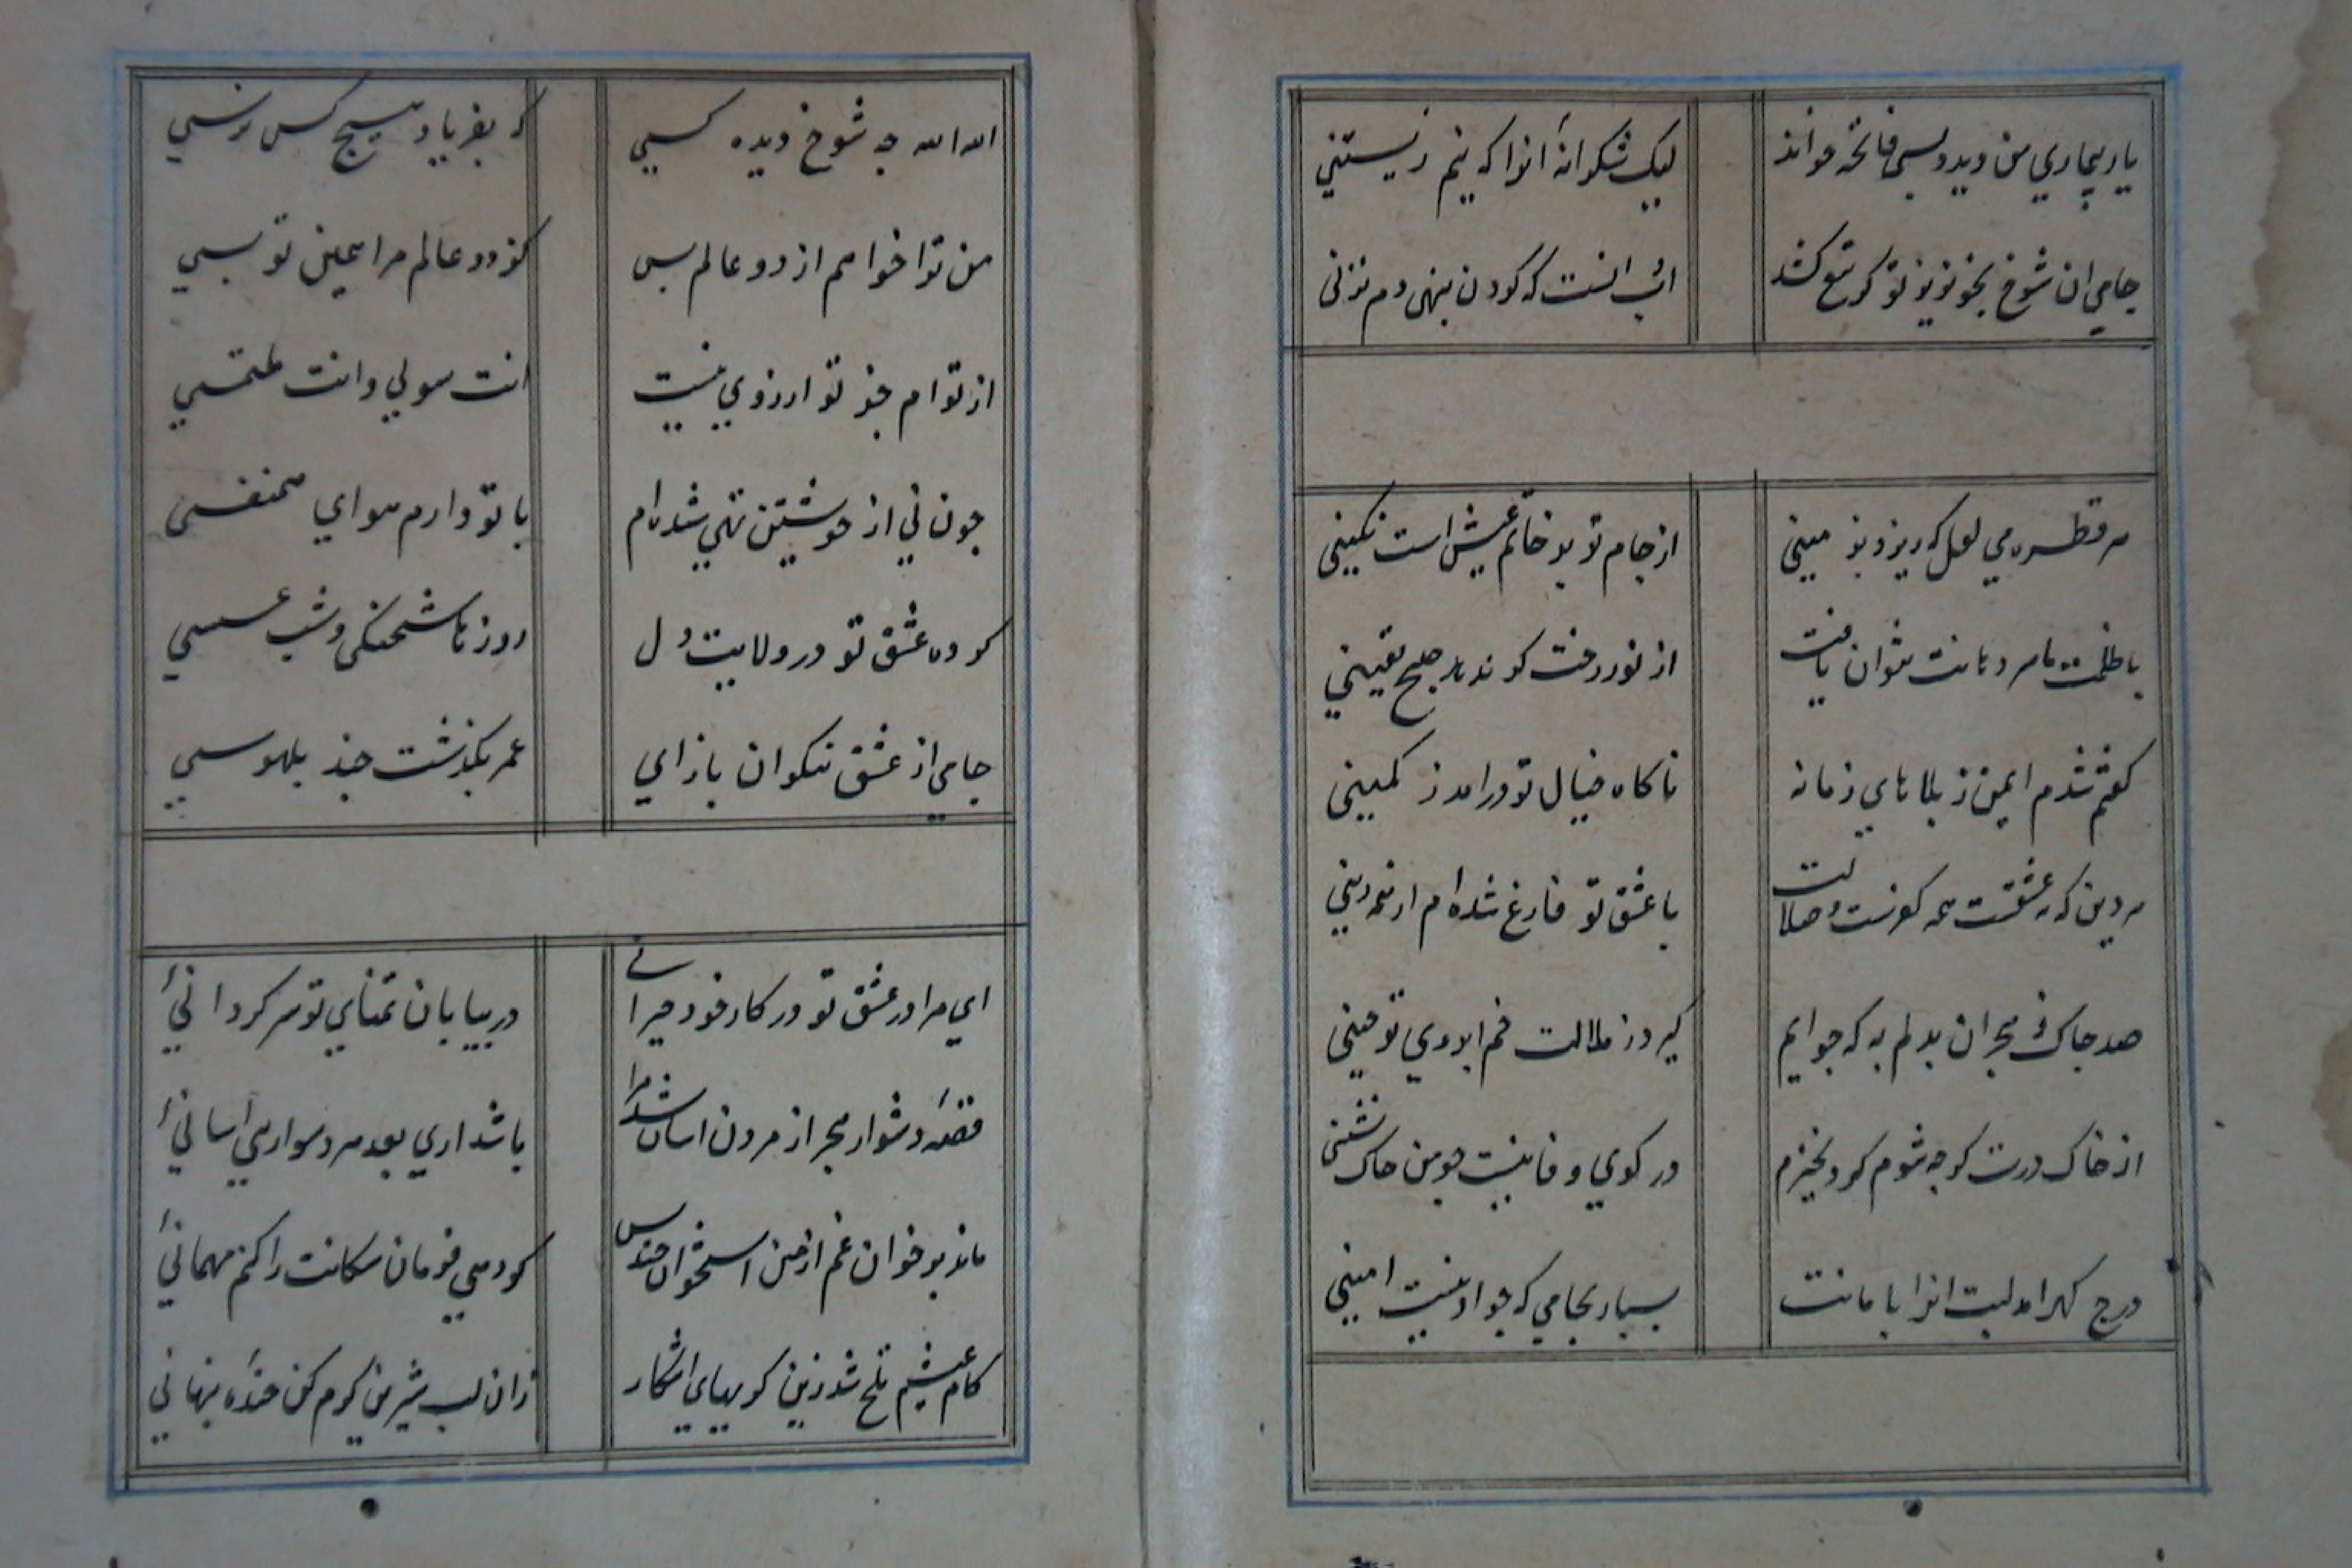 یار بیماری من دید و بسی فاتحه خواند لیک شکرانه آنرا که نیم زیستنی
جامی ان شوخ بخونریز تو کر تیغ کشد ادب انست که کردن بنهی دم نزنی
هر قطره می لعل که ریزد بزمینی از جام تو بر خاتم عیش است نکینی
با ظلمت ما سر دهانت نتوان یافت از نور رخت کر ندمد صبح یقینی
کفتم شدم ایمن ز بلاهای زمانه ناکاه خیال تو درامد ز کمینی
هر دین که نه عشقست همه کفرست و ضلالت با عشق تو فارغ شده‌ام از همه دینی
صد چاک ز هجران بدلم به که چو ایم کیرد ز ملالت خم ابروی تو چینی
از خاک درت کرچه شوم کرد نخیزم در کوی وفا نیست چو من خاک نشینی
درج کهر امد لبت انرا بامانت بسپار بجامی که چو او نیست امینی
الله الله چه شوخ دیده کسی که بفریاد هیچ کس نرسی
من ترا خواهم از دو عالم بس کز دو عالم مرا همین تو بسی
از توام جز تو ارزویی نیست انت سولی وانت ملتمسی
چون نی از خویشتن تهی شده‌ام با تو دارم هوای همنفسی
کرده عشق تو در ولایت دل روزها شحنکی و شب عسسی
جامی از عشق نیکوان بازای عمر بکذشت چند بلهوسی
ای مرا در عشق تو در کار خود حیرانی در بیابان تمنای تو سرکردانیٔ
قصهٔ دشوار هجر از مردن اسان شد مرا باشد اری بعد هر دشواریی اسانیٔ
ماند بر خوان غم از من استخوان چند و بس کو دمی فرمان سکانت را کنم مهمانیٔ
کام عیشم تلخ شد زین کریهای اشکار زان لب شیرین کرم کن خندهٔ پنهانی